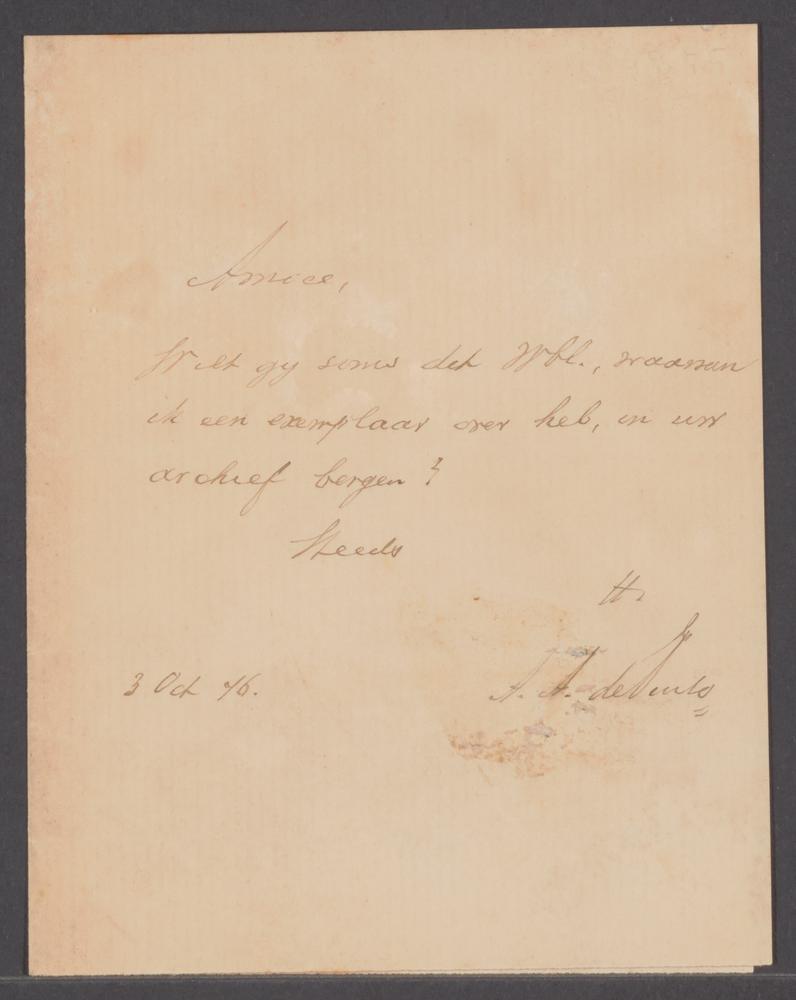 Amice,
Wilt gy soms dit Wbl., waarvan
ik een exemplaar over heb, in uw
archief bergen?
Steeds
tt.
3 Oct 76.
A. A. de Pinto